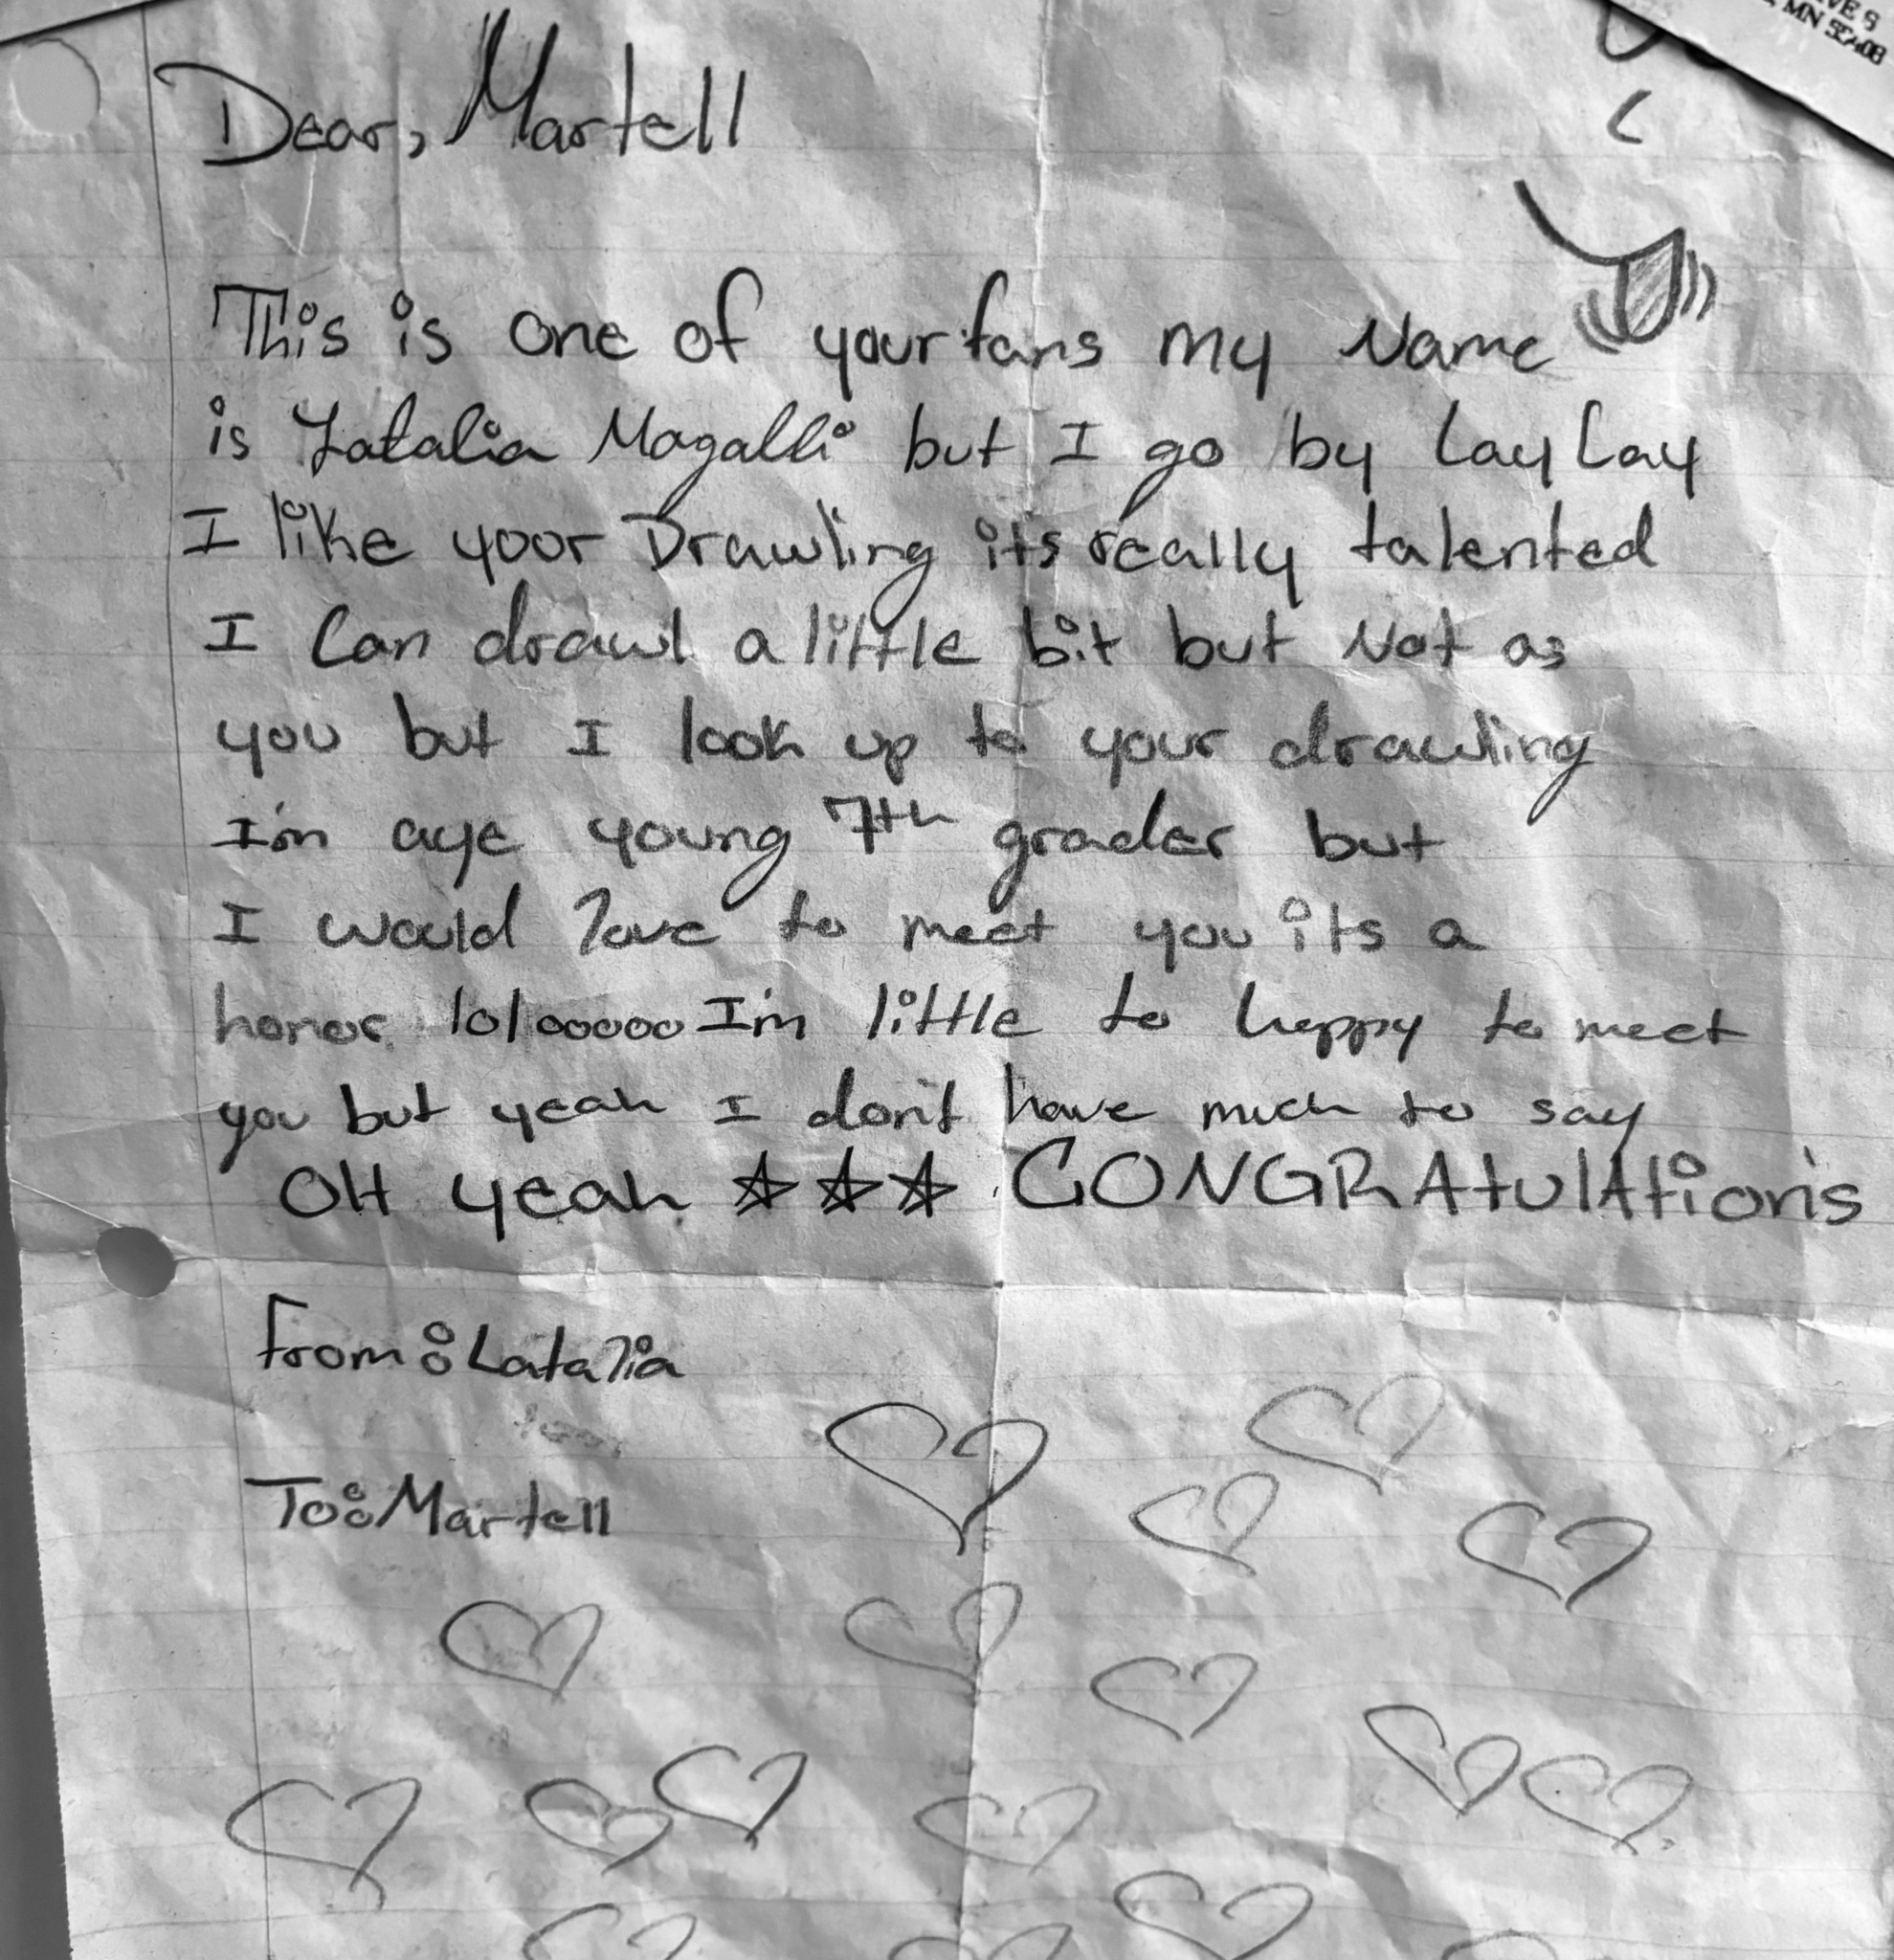 VE S
MN 55408
Dear, Martell
This is one of your fans my Name
is Latalia Magalli but I go by Lay Lay
I like your Drawling its really talented
I Can drawl a little bit but Not as
you but I look up to your drawling
I'm aye young 7th grader but
I would love to meet you its a
honor lolooooo I'm little to happy to meet
you but yeah I don't have much to say
OH yeah ☆☆☆ CONGRAtulAtion's
From: Latalia
To: Martell